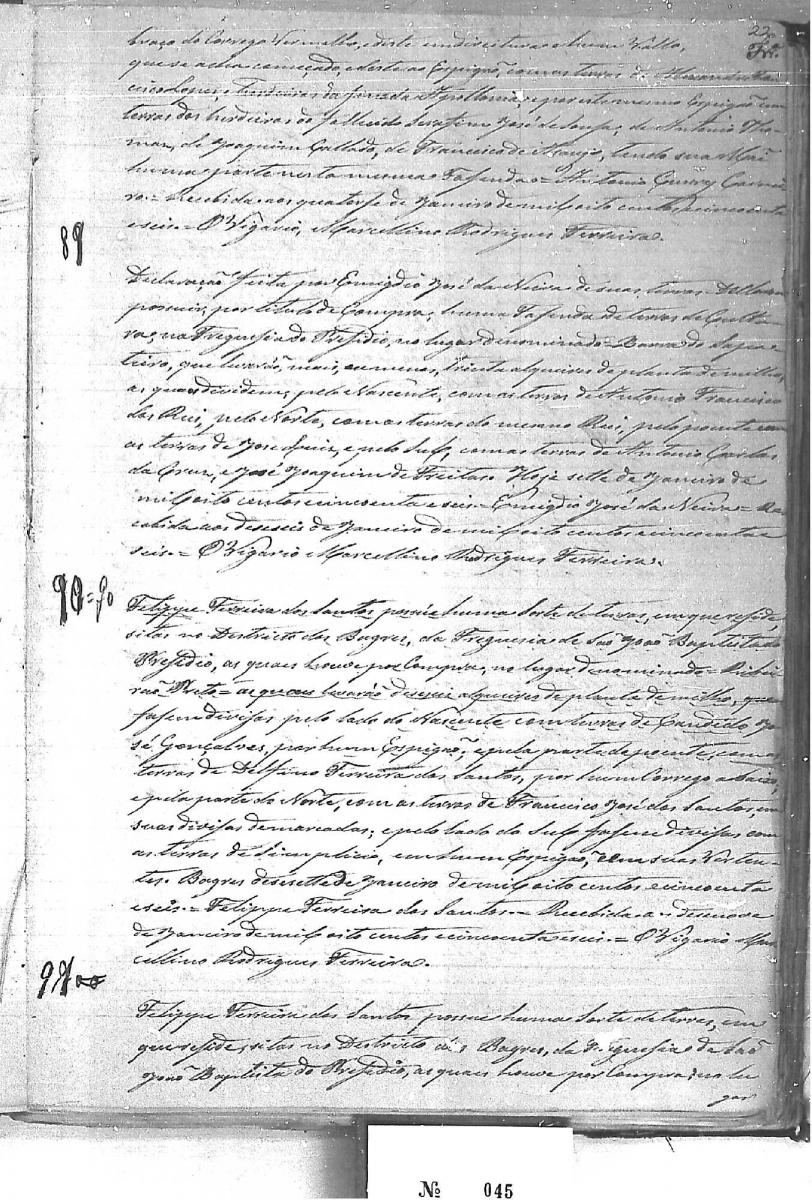 22
Fra.
braço do Corrego Vermelho, e deste em direitura a hum Vallo,
que se acha começado, e deste ao Espigão, com as terras de Alexandre Fran-
cisco Lopes, e herdeiros da finada Apollonia, e por este mesmo Espigão em
terras dos herdeiros do fallecido Serafim José de Souza, de Antonio Tho-
mas, de Joaquim Callado, de Francisco de Araujo, tendo sua Mãi
huma parte nesta mesma Fasenda = Antonio Carnei-
ro = Recebida aos quatorse de Janeiro de mil oito centos e cincoenta
e seis = O Vigario, Marcellino Rodrigues Ferreira.
89
Declaração feita por Emigdio José da Neiva de suas terras =
possuir, por titulo de Compra, huma Fasenda de terras de Cultu-
ra, na Freguesia do Presidio, no lugar denominado = Barra do Sapa-
teiro, que levarão, mais, ou menos, trinta alqueires de planta de milho,
as quaes dividem, pelo Nascente, com as terras de Antonio Francisco
dos Reis, pelo Norte, com as terras do mesmo Reis, pelo poente com
as terras de José Luis, e pelo Sul, com as terras de Antonio Carlos
da Cruz, e José Joaquim de Freitas. Hoje sette de Janeiro de
mil oito centos e cincoenta e seis = Emigdio José da Neiva = Re-
cebida aos deseseis de Janeiro de mil oito centos e cincoenta e
seis = O Vigario Marcellino Rodrigues Ferreira.
90 = 90
Felippe Ferreira dos Santos possue huma Sorte de terras, em que reside
sitas no Destricto dos Bagres, da Freguesia de São João Baptista do
Presidio, as quais houve por Compra, no lugar denominado = Ribei-
rão Preto = as quaes levarão desesei alqueires de planta de milho, que
fasem divisas pelo lado do Nascente com terras de Candido Jo-
sé Gonçalves, por hum Espigão, e pela parte do poente, com as
terras de Delfino Ferreira dos Santos, por hum Corrego abaixo,
e pela parte do Norte, com as terras de Francisco José dos Santos, em
suas divisas demarcadas; e pelo lado do Sul fasem divisas com
as terras de Simplicio, em hum Espigão, e em suas Verten-
tes. Bagres desesette de Janeiro de mil oito centos e cincoenta
e seis = Felippe Ferreira dos Santos = Recebida a desenove
de Janeiro de mil oito centos e cincoenta e seis = O Vigario Mar-
cellino Rodrigues Ferreira.
91
Felippe Ferreira dos Santos possue huma Sorte de terras, em
que reside, sitas no Destricto dos Bagres, da Freguesia de São
João Baptista do Presidio, as quaes houve por Compra, no lu-
gar
№ 045